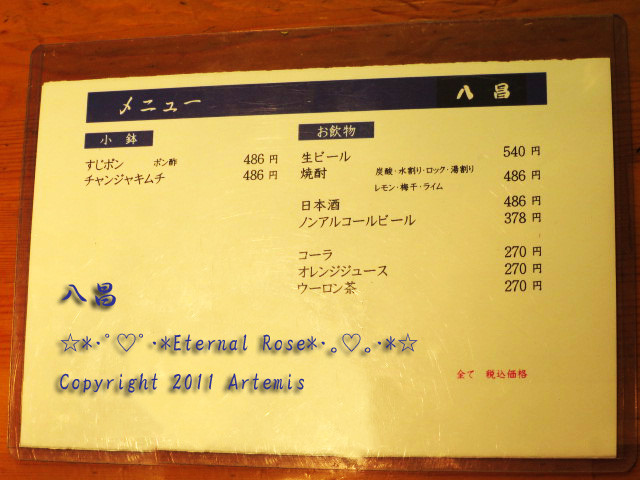 メニュー 八昌
小鉢
すじポン ポン酢 486円
チャンジャキムチ 486円
お飲物
生ビール 540円
焼酎 炭酸・水割り・ロック・湯割り 486円
レモン・梅干・ライム
日本酒 486円
ノンアルコールビール 378円
コーラ 270円
オレンジジュース 270円
ウーロン茶 270円
八昌
☆*・゜♡゜・*Eternal Rose*・。♡。・*☆
Copyright 2011 Artemis
全て 税込価格